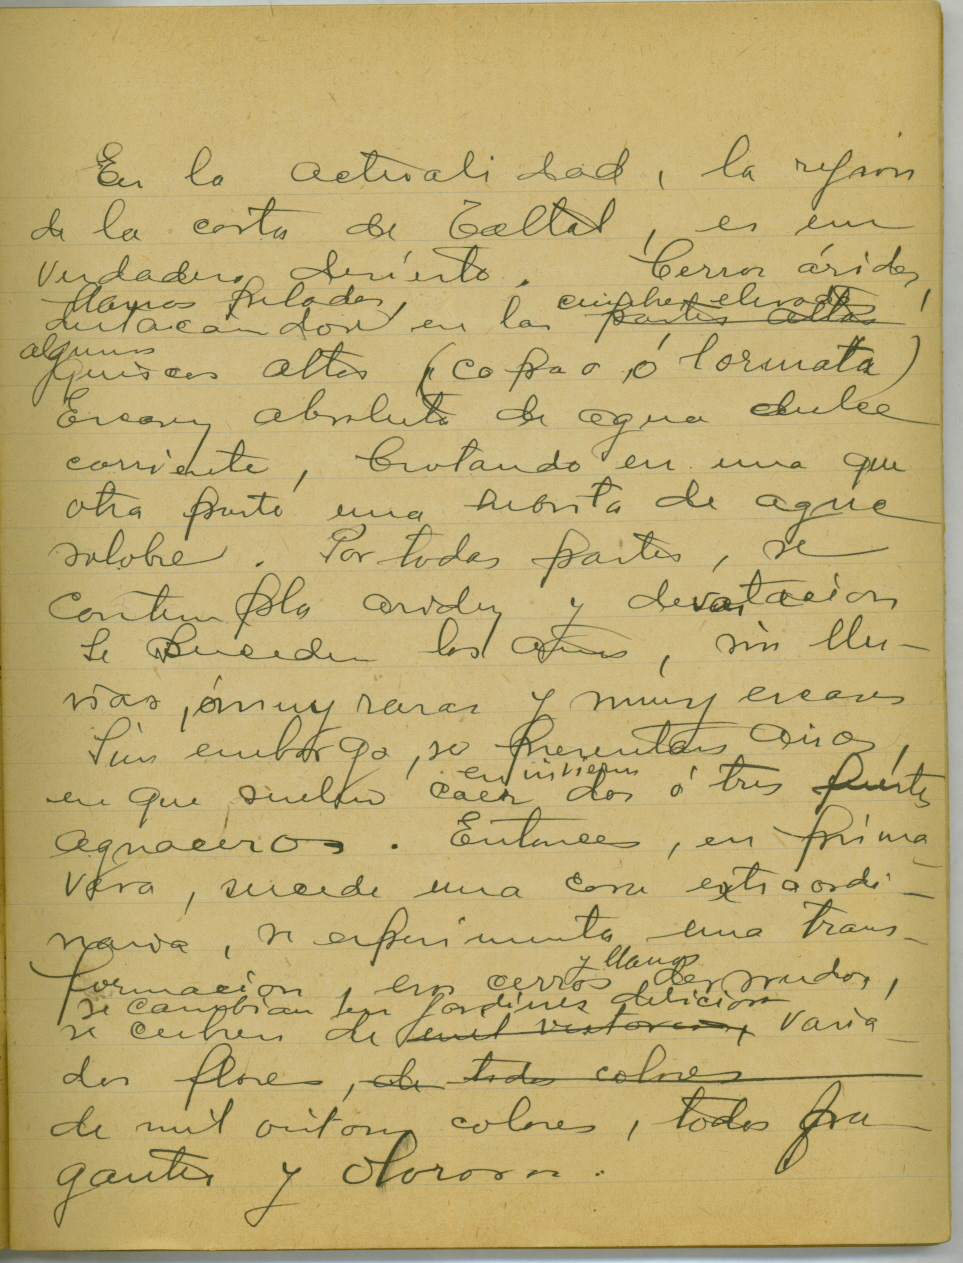 En la actualidad, la region
de la costa de Taltal, es un
verdadero desierto. Cerros áridos,
llanos pelados, cumbres elevadas,
destacandose en las partes altas
algunos
quiscos altos (copao ó lormata)
Escasez absoluta de agua dulce
corriente, brotando en una que
otra parte una de agua
salobre. Por todas partes, se
contempla aridez y devastacion
Se suceden los años, sin llu-
vias, ó muy raras y muy escasas
Sin embargo, se presentan años,
en invierno
en que suelen caer dos ó tres fuertes
aguaceros. Entonces, en prima
vera, sucede una cosa extraordi-
naria, se esperimenta una trans-
y llanos
formacion, esos cerros desnudos,
se cambian en jardines deliciosos
se cubren de mil vistosas, varia
das flores, de todos colores
de mil vistosos colores, todos fra-
gantes y olorosos.